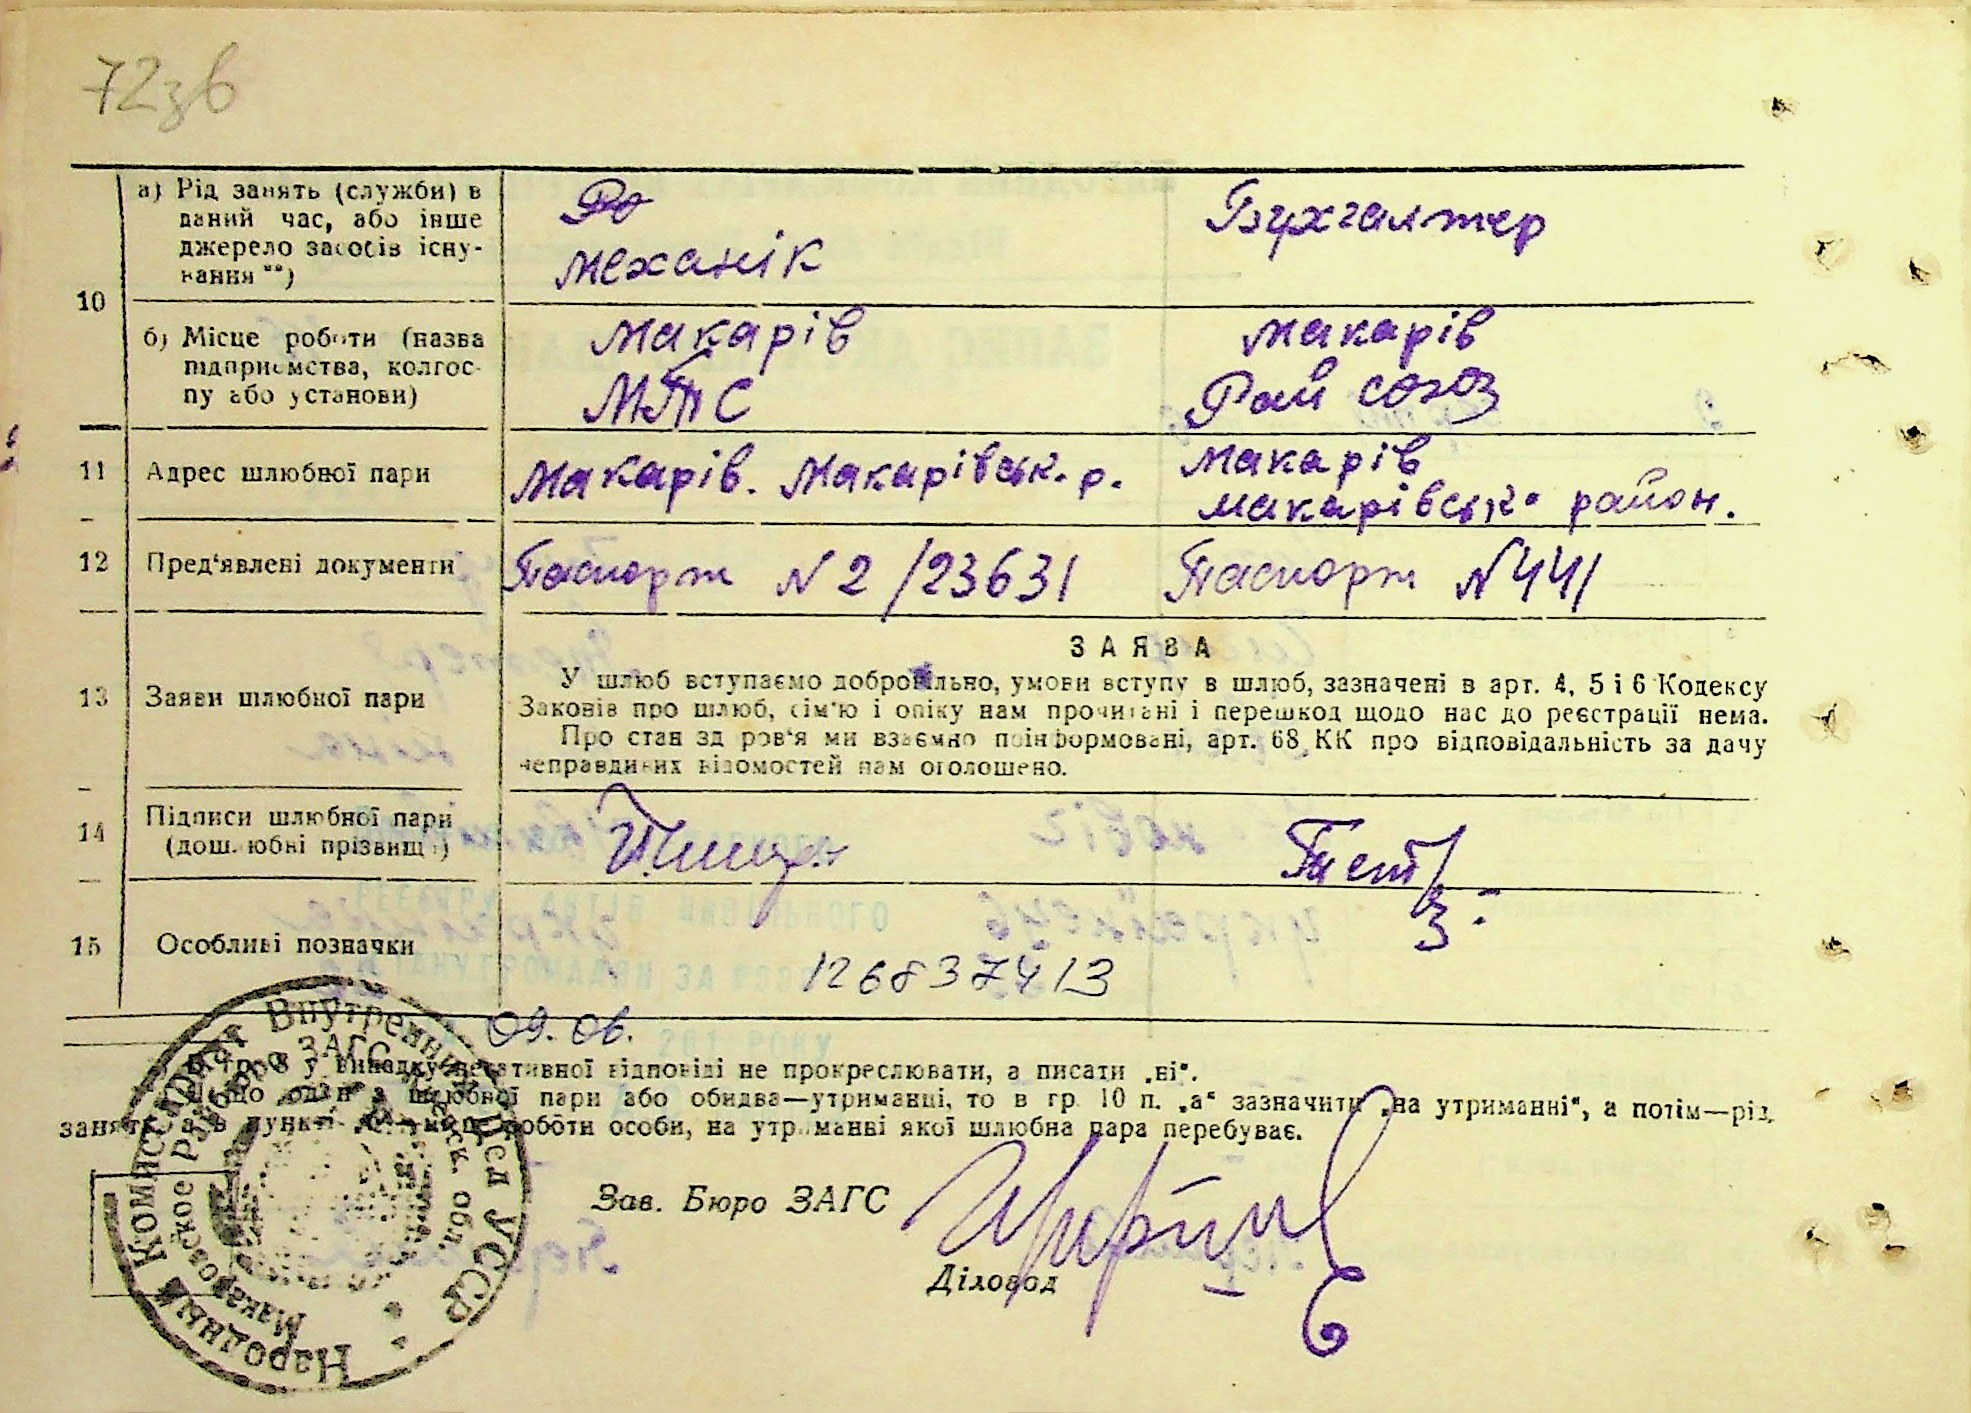 72зв
10
а) Рід занять (служби) в
даний час, або інше
джерело засобів існу-
вання **)
механік
Бухгалтер
б) Місце роботи (назва
підприємства, колгос-
пу або установи)
Макарів
МТС
Макарів
Рай союз
11
Адрес шлюбної пари
Макарів. Макарівськ. р.
Макарів
Макарівськ. район.
12
Пред'явлені документи
Паспорт N 2/23631
Паспорт N 441
13
Заяви шлюбної пари
ЗАЯВА
У шлюб вступаємо добровільно, умови вступу в шлюб, зазначені в арт. 4, 5 і 6 Кодексу
Законів про шлюб, сім'ю і опіку нам прочитані і перешкод щодо нас до реєстрації нема.
Про стан здоров'я ми взаємно поінформовані, арт. 68 КК про відповідальність за дачу
неправдивих відомостей нам оголошено.
14
Підписи шлюбної пари
(дошлюбні прізвища)
15
Особливі позначки
126837413
09.06.
гр. 8 у випадку негативної відповіді не прокреслювати, а писати „ні".
Якщо один з шлюбної пари або обидва—утриманці, то в гр. 10 п. „а" зазначити „на утриманні", а потім—рід
занять, а в пункті роботи особи, на утриманні якої шлюбна пара перебуває.
Зав. Бюро ЗАГС
Діловод
Народный Комиссариат Внутренних Дел УССР
Макаровское Районное Бюро ЗАГС Киевск. обл.